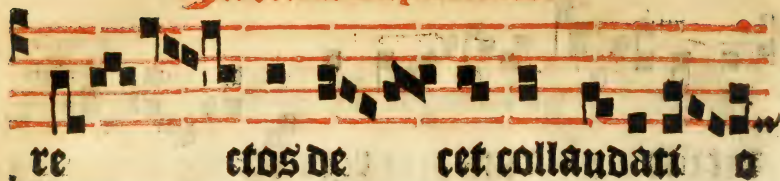 re ctos de cet collaudati o